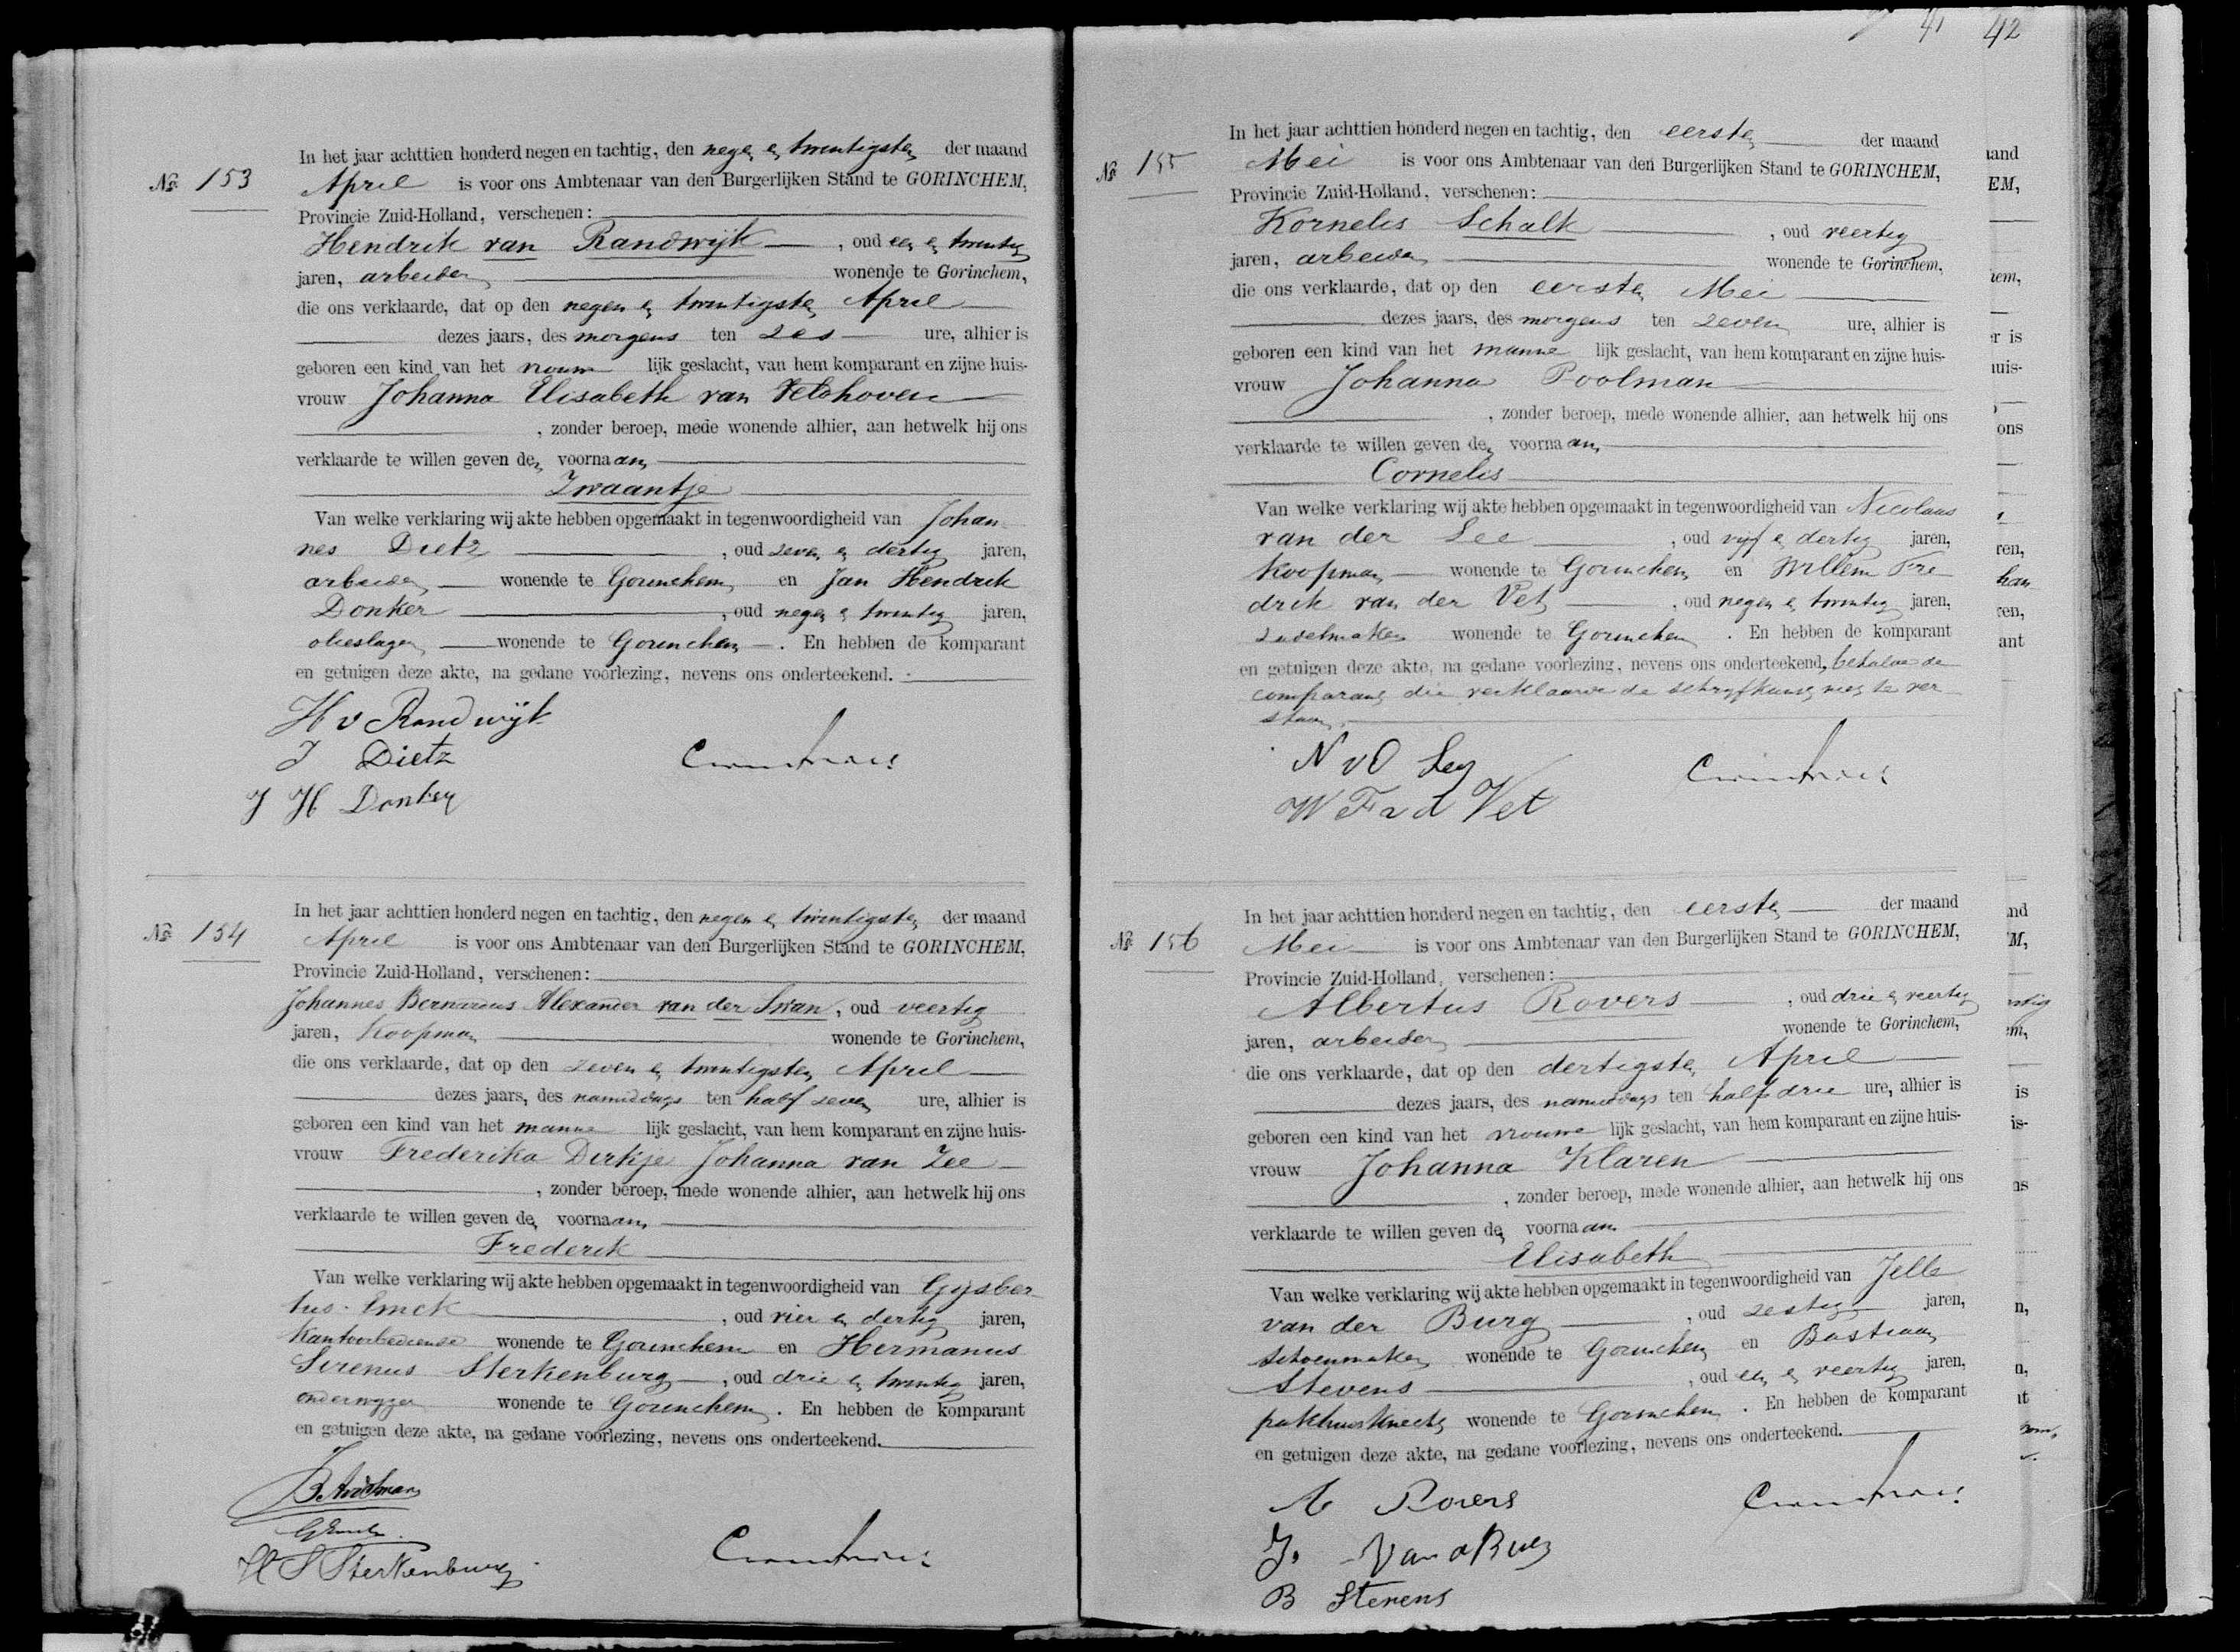 41 42
No. 153
In het jaar achttien honderd negen en tachtig, den negen en twintigsten der maand
April is voor ons Ambtenaar van den Burgerlijken Stand te GORINCHEM,
Provincie Zuid-Holland, verschenen:
Hendrik van Randwijk, oud een en twintig
jaren, arbeider wonende te Gorinchem,
die ons verklaarde, dat op den negen en twintigsten April
dezes jaars, des morgens ten zes ure, alhier is
geboren een kind van het vrouwe lijk geslacht, van hem komparant en zijne huis-
vrouw Johanna Elisabeth van Veldhoven
, zonder beroep, mede wonende alhier, aan hetwelk hij ons
verklaarde te willen geven den voornaam
Zwaantje
Van welke verklaring wij akte hebben opgemaakt in tegenwoordigheid van Johan
nes Dietz, oud zeven en dertig jaren,
arbeider wonende te Gorinchem en Jan Hendrik
Donker, oud negen en twintig jaren,
olieslager wonende te Gorinchem. En hebben de komparant
en getuigen deze akte, na gedane voorlezing, nevens ons onderteekend.
H v Randwijk
J Dietz
J H Donker
No. 154
In het jaar achttien honderd negen en tachtig, den negen en twintigsten der maand
April is voor ons Ambtenaar van den Burgerlijken Stand te GORINCHEM,
Provincie Zuid-Holland, verschenen:
Johannes Bernardus Alexander van der Swan, oud veertig
jaren, Koopman wonende te Gorinchem,
die ons verklaarde, dat op den zeven en twintigsten April
dezes jaars, des namiddags ten half zeven ure, alhier is
geboren een kind van het manne lijk geslacht, van hem komparant en zijne huis-
vrouw Frederika Dirkje Johanna van Zee
, zonder beroep, mede wonende alhier, aan hetwelk hij ons
verklaarde te willen geven den voornaam
Frederik
Van welke verklaring wij akte hebben opgemaakt in tegenwoordigheid van Gijsber
tus Emck, oud vier en dertig jaren,
Kantoorbediende wonende te Gorinchem en Hermanus
Serenus Sterkenburg, oud drie en twintig jaren,
onderwyzer wonende te Gorinchem. En hebben de komparant
en getuigen deze akte, na gedane voorlezing, nevens ons onderteekend.
GEmck
H S Sterkenburg
No. 155
In het jaar achttien honderd negen en tachtig, den eersten der maand
Mei is voor ons Ambtenaar van den Burgerlijken Stand te GORINCHEM,
Provincie Zuid-Holland, verschenen:
Kornelis Schalk, oud veertig
jaren, arbeider wonende te Gorinchem,
die ons verklaarde, dat op den eersten Mei
dezes jaars, des morgens ten zeven ure, alhier is
geboren een kind van het manne lijk geslacht, van hem komparant en zijne huis-
vrouw Johanna Poolman
, zonder beroep, mede wonende alhier, aan hetwelk hij ons
verklaarde te willen geven den voornaam
Cornelis
Van welke verklaring wij akte hebben opgemaakt in tegenwoordigheid van Nicolaas
van der Lee, oud vijf en dertig jaren,
Koopman wonende te Gorinchem en Willem Fre
drik van der Vet, oud negen en twintig jaren,
zadelmaker wonende te Gorinchem. En hebben de komparant
en getuigen deze akte, na gedane voorlezing, nevens ons onderteekend, behalve de
comparant die verklaarde de schryfkunst niet te ver
staan.
N v D Ley
W F v d Vet
No. 156
In het jaar achttien honderd negen en tachtig, den eersten der maand
Mei is voor ons Ambtenaar van den Burgerlijken Stand te GORINCHEM,
Provincie Zuid-Holland, verschenen:
Albertus Rovers, oud drie en veertig
jaren, arbeider wonende te Gorinchem,
die ons verklaarde, dat op den dertigsten April
dezes jaars, des namiddags ten half drie ure, alhier is
geboren een kind van het vrouwe lijk geslacht, van hem komparant en zijne huis-
vrouw Johanna Klaren
, zonder beroep, mede wonende alhier, aan hetwelk hij ons
verklaarde te willen geven den voornaam
Elisabeth
Van welke verklaring wij akte hebben opgemaakt in tegenwoordigheid van Jelle
van der Burg, oud zestig jaren,
schoenmaker wonende te Gorinchem en Bastiaan
Stevens, oud een en veertig jaren,
pakhuisknecht wonende te Gorinchem. En hebben de komparant
en getuigen deze akte, na gedane voorlezing, nevens ons onderteekend.
A Rovers
J. Van d Burg
B Stevens